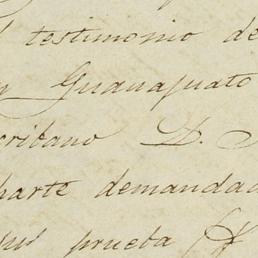 testimonio de
Guanajuato
cribano D.
parte demandad
prueba